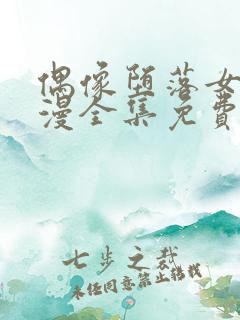 偶像堕落女
漫全集免费
七步之裁
未经同意禁止转载